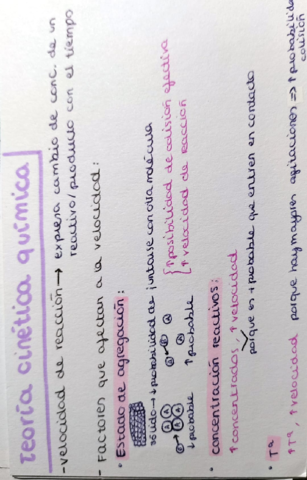 Teoría cinética química
- Velocidad de reacción → expresa cambio de conc. de un
reactivo/producto con el tiempo
- Factores que afectan a la velocidad:
• Estado de agregación:
sólido → ↓ probabilidad de juntarse con otra molécula
↓ probable ↑ probable
[↑ posibilidad de colisión efectiva
↑ velocidad de reacción
• concentración reactivos:
↑ concentrados, ↑ velocidad
porque es + probable que entren en contacto
• Tª
↑Tª, ↑ velocidad porque hay mayores agitaciones ⇒ ↑ probabilidad
colisión